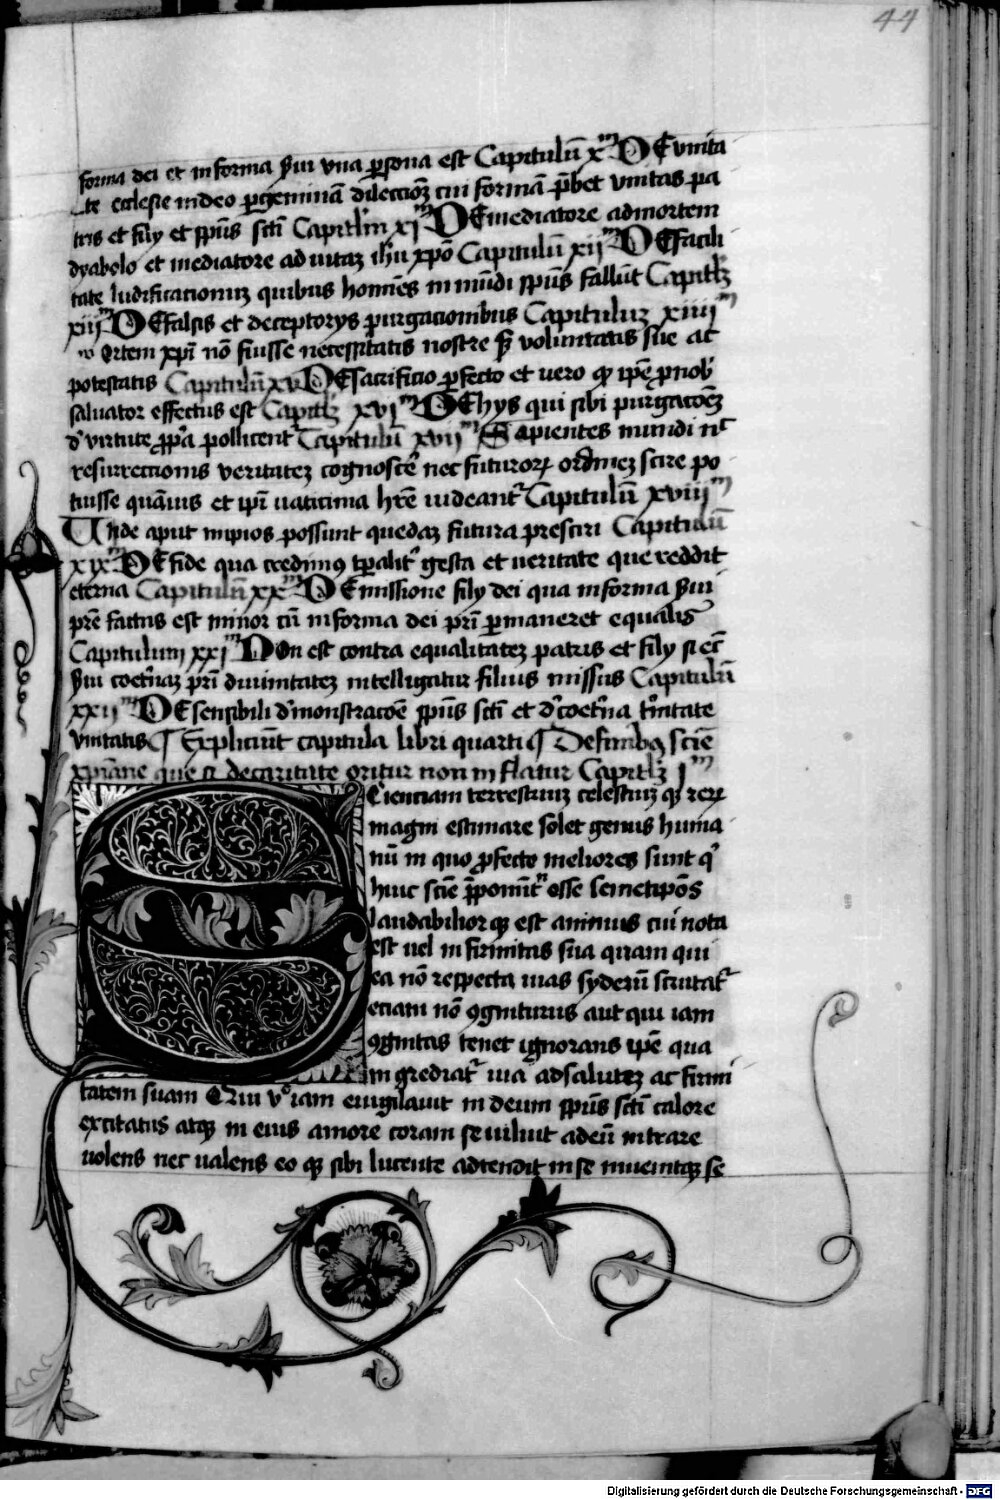 44
forma dei et in forma s͛ui vna ꝑsona est Capitulū xᵐ DE vnita
te ecclesie in deo ꝑ geminā dileccōꝫ cui formā p̄bet vnitas pa
tris et filij et sp̄us sc̄ti Capitl̄m xjᵐ DE mediatore ad mortem
dyabolo et mediatore ad uitaꝫ ih̄u xp̄o Capitulū xijᵐ DE facili
tate ludificationuꝫ quibus homīes in mūdi sp̄us fallūt Capitlꝫ
xiijᵐ DE falsis et deceptorijs purgacionibus Capituluꝫ xiiijᵐ
Mortem xp̄i nō fuisse necessitatis nostre sꝫ voluntatis sue ac
potestatis Capitulū xvᵐ DE sacrificio ꝑfecto et uero qꝫ ip̄e ꝓ nob̉
saluator effectus est Capitlꝫ xvjᵐ DE hijs qui sibi purgacōeꝫ
d̉ virtute ꝓp̄a pollicent̉ Capitulū xvijᵐ Sapientes mundi nec
resurrectionis veritateꝫ cognosc̄e nec futuroꝝ ordineꝫ scire po
tuisse quāuis et ip̄i uaticinia h̄re uideant̉ Capitulū xviijᵐ
Unde aput impios possunt quedaꝫ futura presciri Capitulū
xixᵐ DE fide qua credimꝰ tp̄alit̉ gesta et ueritate que reddit
eterna Capitulū xxᵐ DE missione filij dei qua in forma s͛ui
pr̄e factus est minor cū in forma dei pr̄i ꝑmaneret equalis
Capitulum xxjᵐ Non est contra equalitateꝫ patris et filij si ec̄
s͛ui coet̉naꝫ pr̄i diuinitateꝫ intelligatur filius missus Capitulū
xxijᵐ DE sensibili d̉monstracōe sp̄us sc̄ti et d̉ coet̉na t̉nitate
vnitatis ¶ Expliciūt capitula libri quarti ¶ De finibꝫ sciē
xp̄iane que si de caritate oritur non inflatur Capitlꝫ jᵐ
Scienciam terrestriuꝫ celestiuꝫ qꝫ reꝝ
magni estimare solet genus huma
nū in quo ꝓfecto meliores sunt q̉
huic sciē p̄ponūt nosse semetip̄os
laudabilior qꝫ est animus cui nota
est uel infirmitas sua quam qui
ea nō respecta uias syderū scrutat̉
eciam nō ꝯgniturus aut qui iam
ꝯgnitas tenet ignorans ip̄e qua
ingrediat̉ uia ad saluteꝫ ac firmi
tatem suam Qui vͦ iam euigilauit in deum sp̄us sc̄ti calore
excitatus atqꝫ in eius amore coram se uiluit ad eū intrare
uolens nec ualens eo qꝫ sibi lucente adtendit in se inuenitqꝫ se
Digitalisierung gefördert durch die Deutsche Forschungsgemeinschaft - DFG